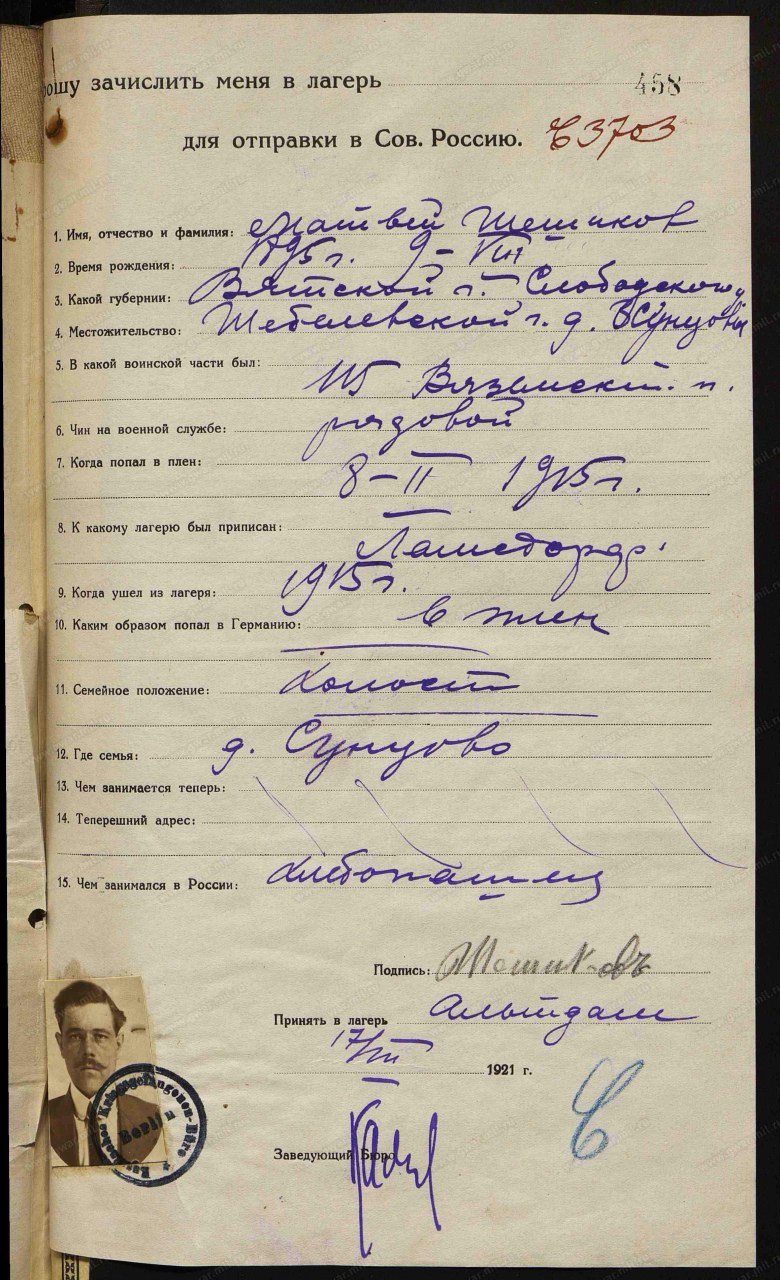 ошу зачислить меня в лагерь 458
для отправки в Сов. Россию. С3703
1. Имя, отчество и фамилия: Матвей Шешиков
2. Время рождения: 1895 г. 9-VIII
3. Какой губернии: Вятской г. Слободского у.
4. Местожительство: Шебелевской г. д. Сунцовы
5. В какой воинской части был:
115 Вяземский п.
6. Чин на военной службе: рядовой
7. Когда попал в плен:
8-II 1915 г.
8. К какому лагерю был приписан:
Ламсдорф.
9. Когда ушел из лагеря: 1915 г.
10. Каким образом попал в Германию: в плен
11. Семейное положение: Холост
12. Где семья: д. Сунцово
13. Чем занимается теперь:
14. Теперешний адрес:
15. Чем занимался в России: хлебопашец
Подпись:
Принять в лагерь Альтдам
17/VIII 1921 г.
Заведующий Бюро
Russisches Kriegsgefangenen-Büro
Berlin
С